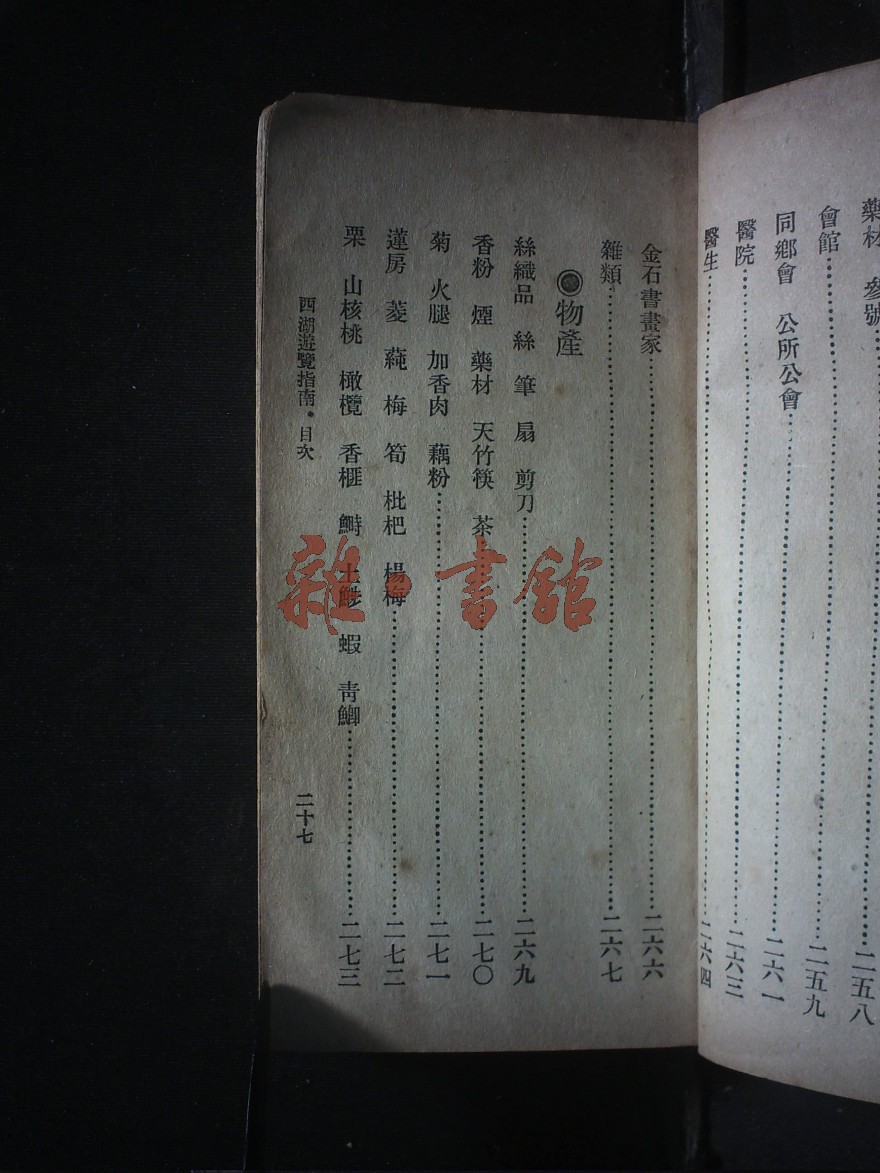 藥材　參號……二五八
會館……二五九
同鄉會　公所公會……二六一
醫院……二六三
醫生……二六四
金石書畫家……二六六
雜類……二六七
◉物產
絲織品　絲　筆　扇　剪刀……二六九
香粉　煙　藥材　天竹筷　茶……二七〇
菊　火腿　加香肉　藕粉……二七一
蓮房　菱　蒓　梅　筍　枇杷　楊梅……二七二
栗　山核桃　橄欖　香榧　鰣　土鯗　蝦　青鯽……二七三
西湖遊覽指南・目次
二十七
雜·書館